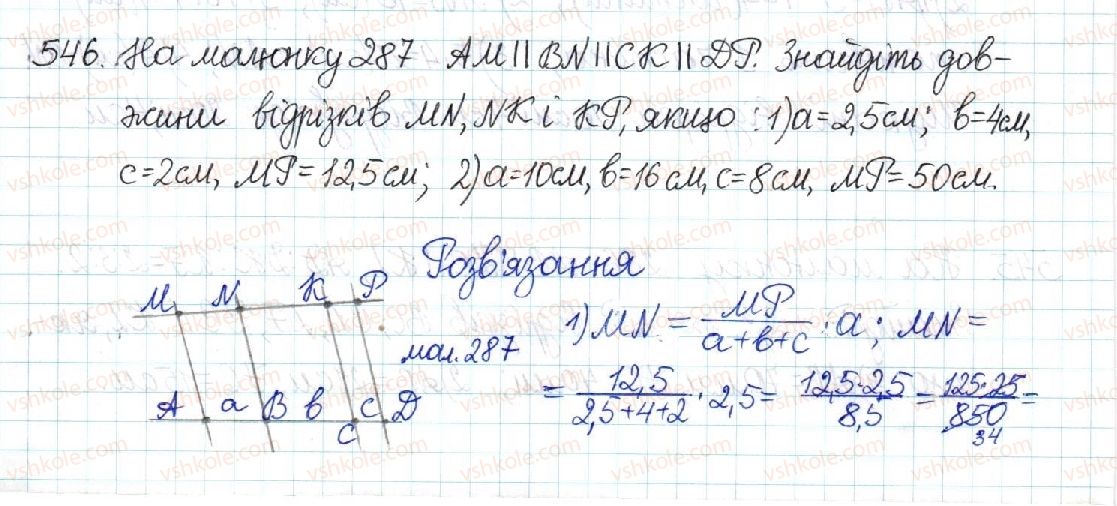 546. На малюнку 287 AM || BN || CK || DP. Знайдіть дов-
жини відрізків MN, NK і KP, якщо : 1) a = 2,5 см; в = 4 см,
c = 2 см, MP = 12,5 см; 2) a = 10 см, в = 16 см, c = 8 см, MP = 50 см.
Розв'язання
M N K P
мал. 287
A a B в c D
C
1) MN = MP / (a + в + c) · a; MN =
= 12,5 / (2,5 + 4 + 2) · 2,5 = 12,5 · 2,5 / 8,5 = 125 · 25 / 850 =
34
vshkole.com